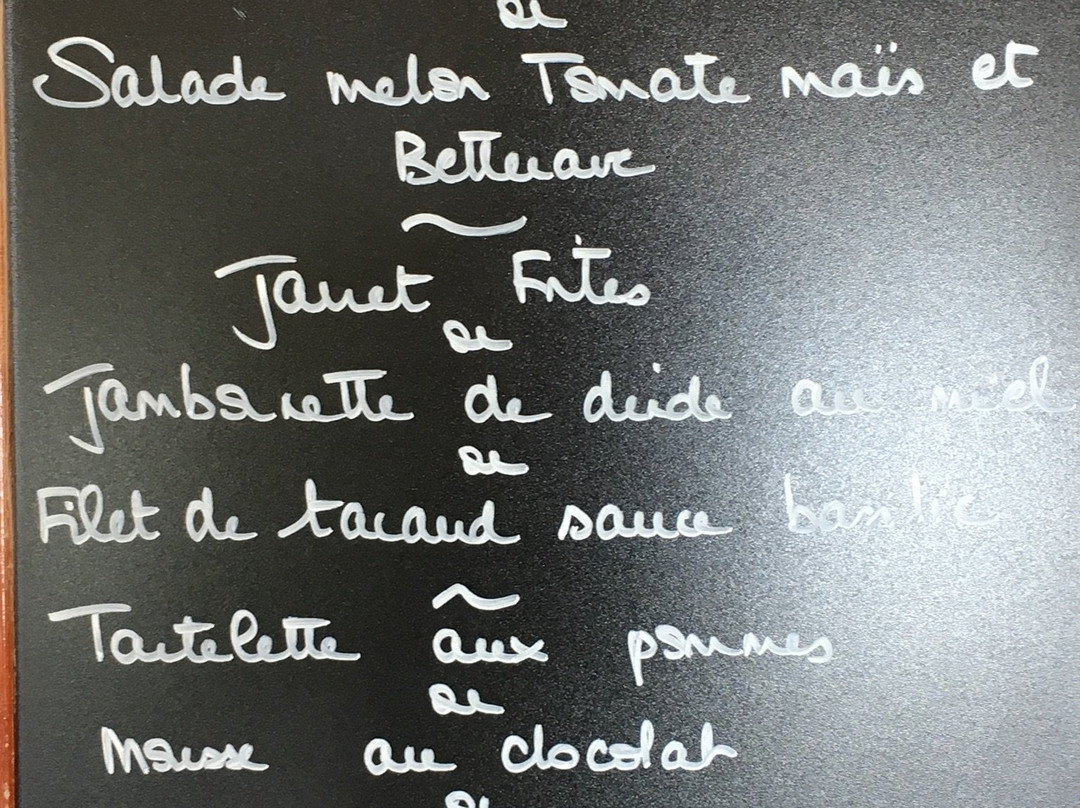 ou
Salade melon Tomate maïs et
Betterave
~
Jarret Frites
ou
Jambonette de dinde au miel
ou
Filet de tacaud sauce basilic
~
Tartelette aux pommes
ou
Mousse au chocolat
ou